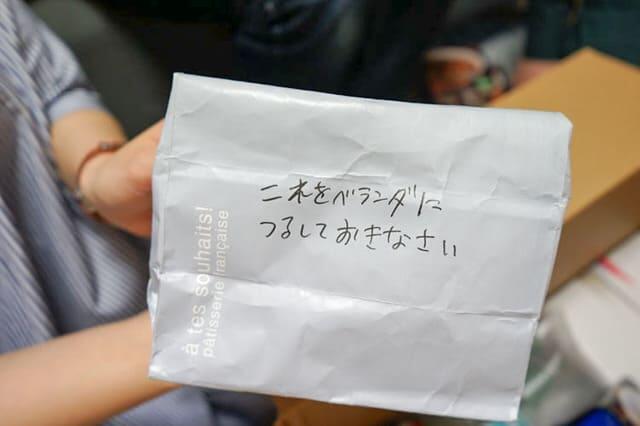 これをベランダに
つるしておきなさい
à tes souhaits!
pâtisserie française